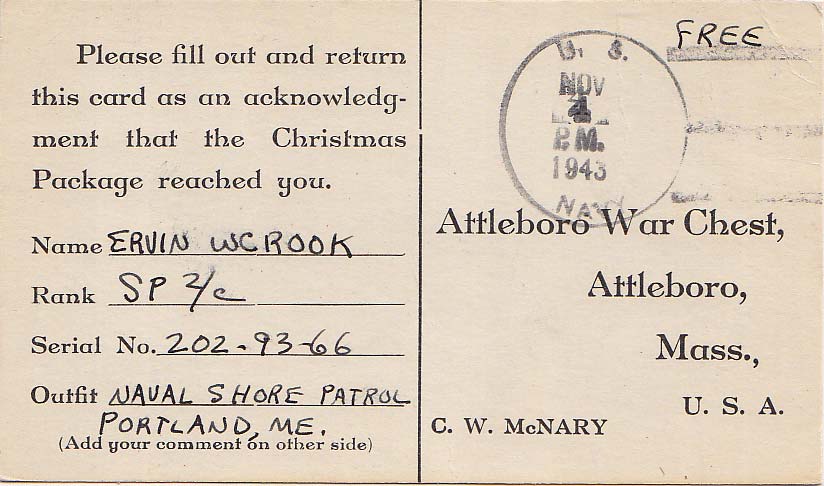 Please fill out and return
this card as an acknowledg-
ment that the Christmas
Package reached you.
Name ERVIN W CROOK
Rank SP 2/c
Serial No. 202-93-66
Outfit NAVAL SHORE PATROL
PORTLAND, ME.
(Add your comment on other side)
FREE
U. S.
NOV
4
P.M.
1943
NAVY
Attleboro War Chest,
Attleboro,
Mass.,
U. S. A.
C. W. McNARY